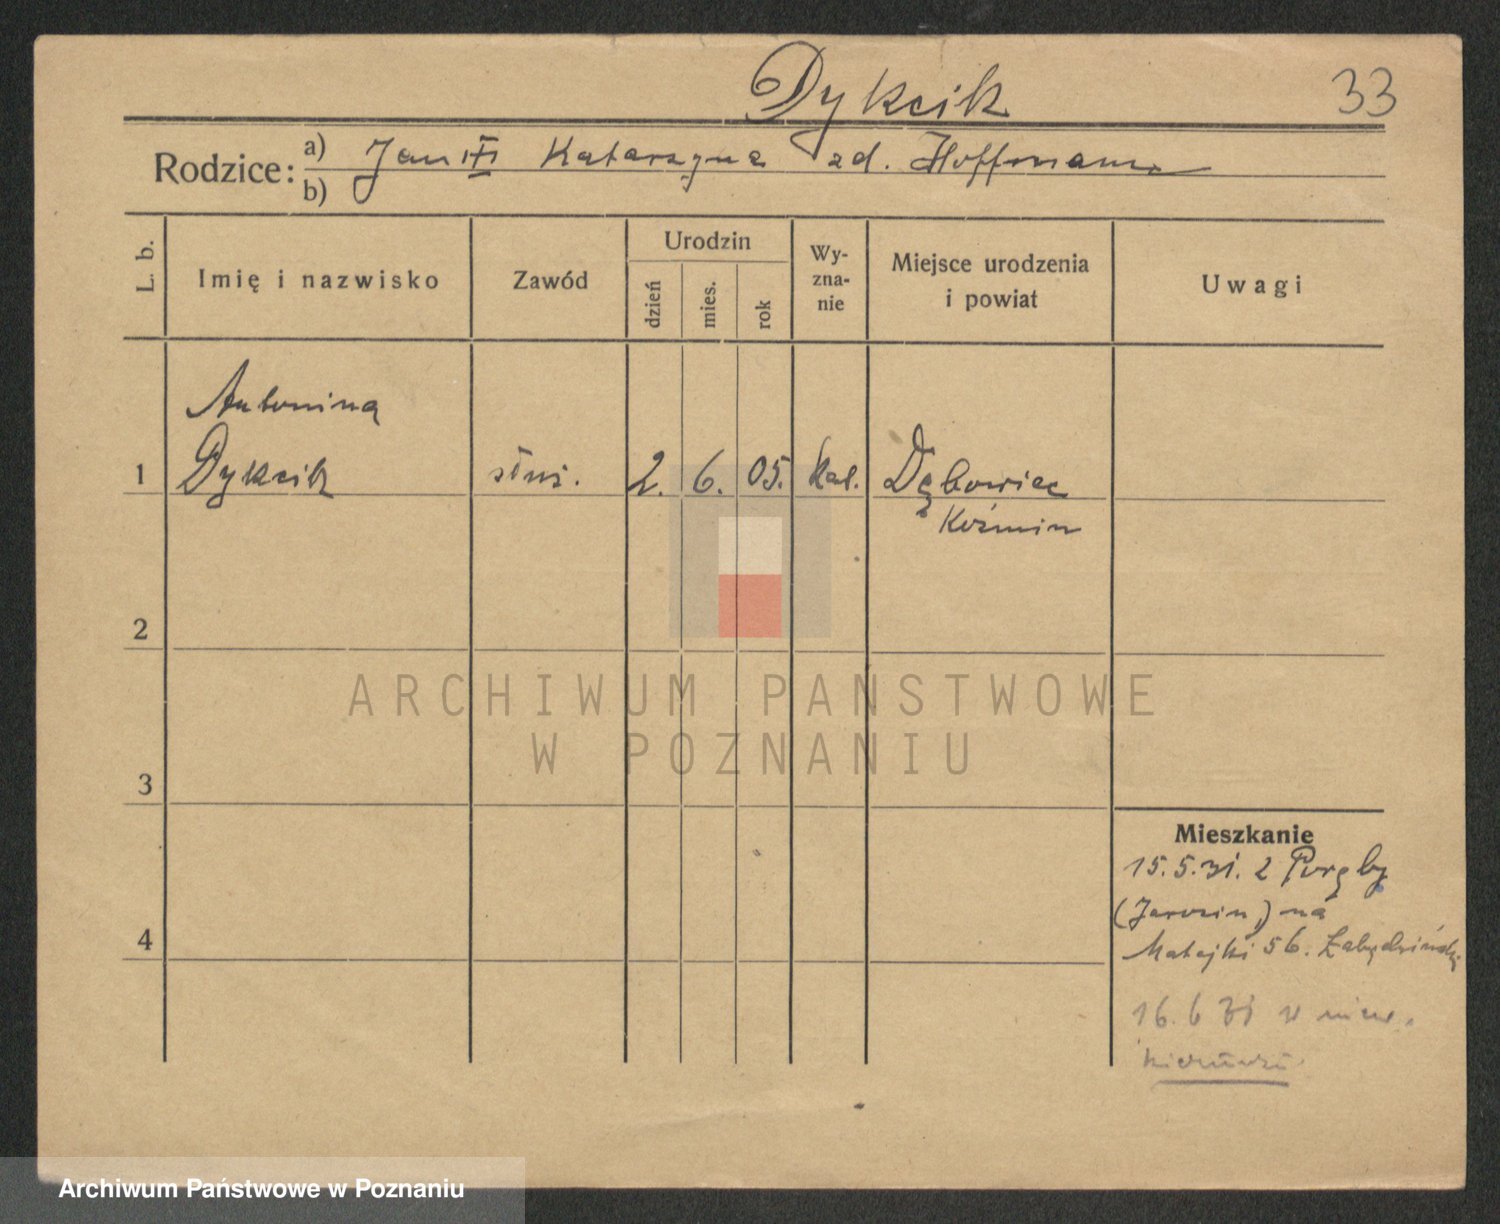 Dykcik 33
Rodzice: a) Jan Katarzyna zd. Hoffmann
b)
L. b. Imię i nazwisko Zawód Urodzin dzień mies. rok Wy-zna-nie Miejsce urodzenia i powiat Uwagi
Antonina
1 Dykcik służ. 2. 6. 05. kat. Dębowiec
Koźmin
2
ARCHIWUM PAŃSTWOWE
W POZNANIU
3
Mieszkanie
15.5.31. z Poręby
(Jarocin) na
4
Matejki 56.
16.6 31 w
Archiwum Państwowe w Poznaniu